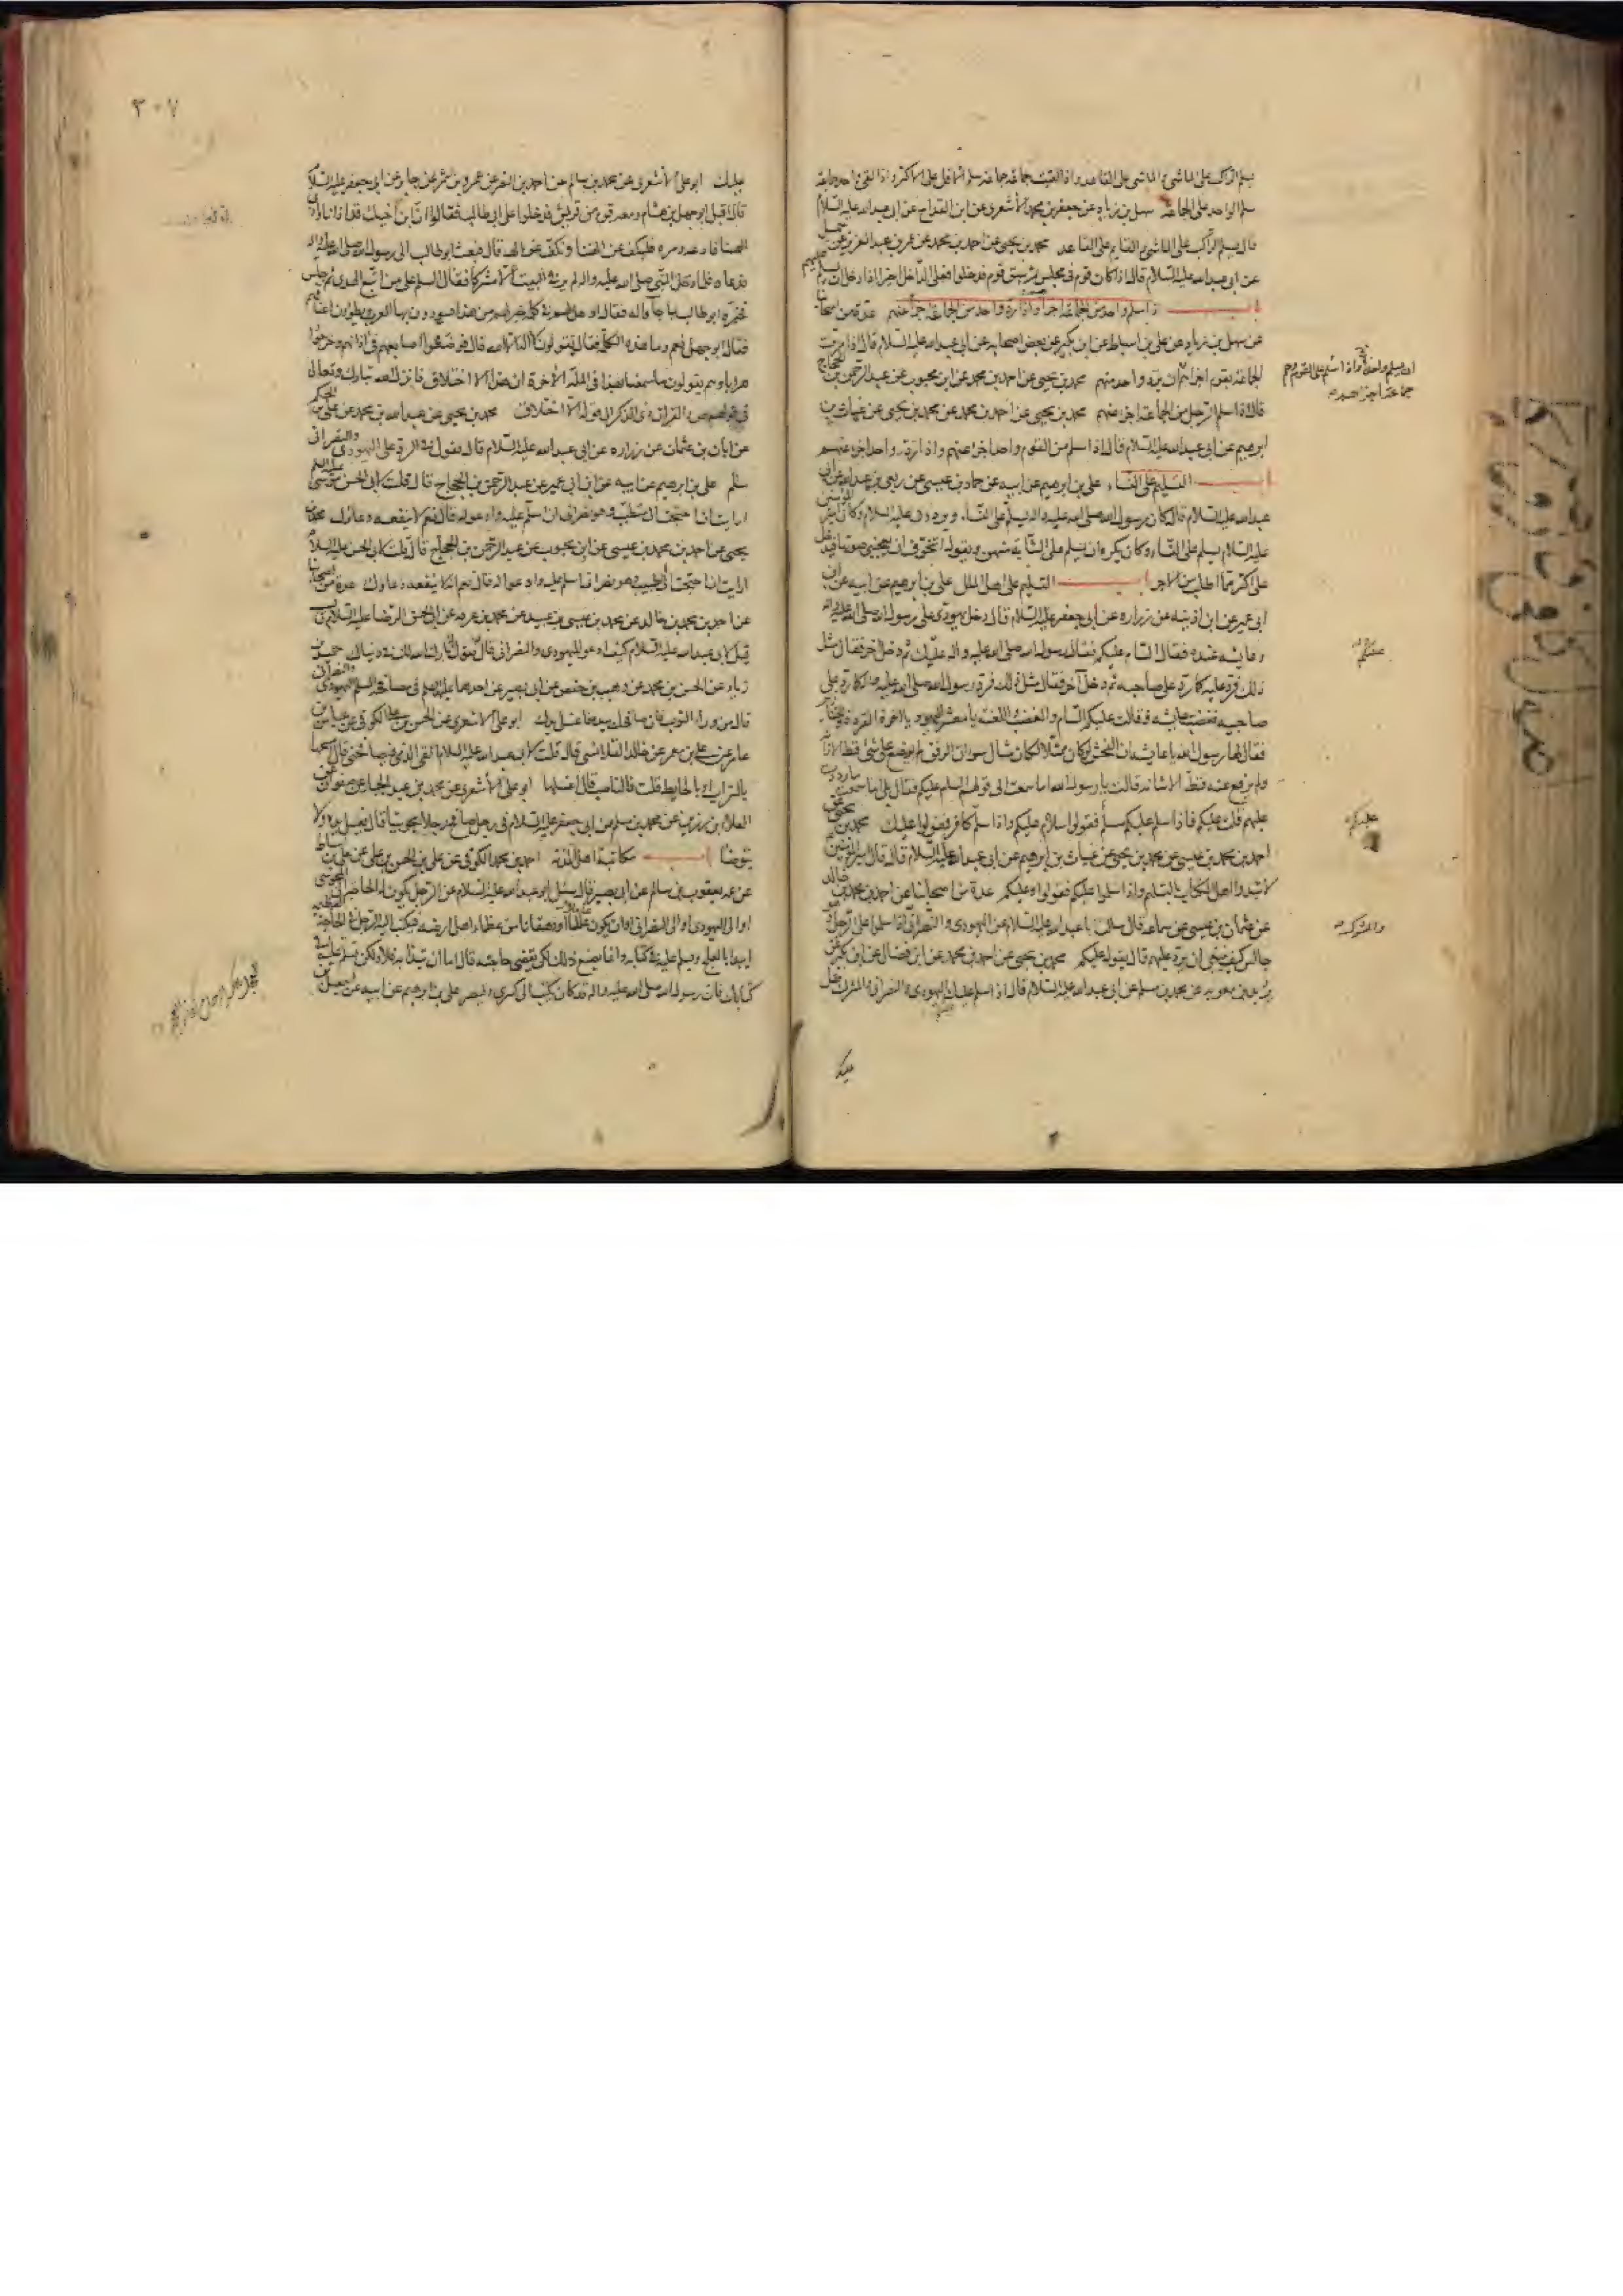 يسلم الراكب على الماشى والماشى على القاعد واذا لقيت جماعة جماعة سلم الاقل على الاكثر واذا لقى واحد جماعة
سلم الواحد على الجماعة سهل بن زياد عن جعفر بن محمد الأشعرى عن ابن القداح عن ابى عبد الله عليه السلام
قال يسلم الراكب على الماشى والقايم على القاعد محمد بن يحيى عن احمد بن محمد عن عمر بن عبد العزيز عن جميل
عن ابى عبد الله عليه السلام قال اذا كان قوم فى مجلس ثم سبق قوم فدخلوا فعلى الداخل اخيرا اذا دخل ان يسلم عليهم
باب اذا سلم واحد من الجماعة اجزأ واذا رد واحد من الجماعة اجزأ عنهم عدة من اصحابنا
عن سهل بن زياد عن على بن اسباط عن ابن بكير عن بعض اصحابه عن ابى عبد الله عليه السلام قال اذا مرت
الجماعة بقوم اجزاهم ان يرد واحد منهم محمد بن يحيى عن احمد بن محمد عن ابن محبوب عن عبد الرحمن بن الحجاج
قال اذا سلم الرجل من الجماعة اجزء عنهم محمد بن يحيى عن احمد بن محمد عن محمد بن يحيى عن غياث بن
ابرهيم عن ابى عبد الله عليه السلام قال اذا سلم من القوم واحد اجزء عنهم واذا رد واحد اجزء عنهم
باب التسليم على النساء على بن ابرهيم عن ابيه عن حماد بن عيسى عن ربعى بن عبد الله عن ابى
عبد الله عليه السلام قال كان رسول الله صلى الله عليه واله يسلم على النساء ويرددن عليه السلام وكان امير المؤمنين
عليه السلام يسلم على النساء وكان يكره ان يسلم على الشابة منهن ويقول اتخوف ان يعجبنى صوتها فيدخل
على اكثر مما اطلب من الاجر باب التسليم على اهل الملل على بن ابرهيم عن ابيه عن ابن
ابى عمير عن ابن اذينه عن زراره عن ابى جعفر عليه السلام قال دخل يهودى على رسول الله صلى الله عليه واله
وعايشه عنده فقال السام عليكم فقال رسول الله صلى الله عليه واله عليك ثم دخل اخر فقال مثل
ذلك فرد عليه كما رد على صاحبه ثم دخل آخر فقال مثل ذلك فرد رسول الله صلى الله عليه واله كما رد على
صاحبيه فغضبت عايشه فقالت عليكم السام والغضب واللعنه يا معشر اليهود يا اخوة القردة والخنازير
فقال لها رسول الله يا عايشه ان الفحش لو كان ممثلا لكان مثال سوء ان الرفق لم يوضع على شئ قط الا زانه
ولم يرفع عنه قط الا شانه قالت يا رسول الله اما سمعت الى قولهم السام عليكم فقال بلى اما سمعت ما رددت
عليهم قلت عليكم فاذا سلم عليكم مسلم فقولوا سلام عليكم واذا سلم كافر فقولوا عليك محمد بن يحيى عن
احمد بن محمد بن عيسى عن محمد بن يحيى عن غياث بن ابرهيم عن ابى عبد الله عليه السلام قال قال امير المؤمنين
لا تبدوا اهل الكتاب بالتسليم واذا سلموا عليكم فقولوا وعليكم عدة من اصحابنا عن احمد بن محمد بن خالد
عن عثمان بن عيسى عن سماعه قال سالت ابا عبد الله عليه السلام عن اليهودى والنصرانى اذا سلموا على الرجل وهو
جالس كيف ينبغى ان يرد عليهم قال يقول عليكم محمد بن يحيى عن احمد بن محمد عن ابن فضال عن ابن بكير عن
بريد بن معويه عن محمد بن مسلم عن ابى عبد الله عليه السلام قال اذا سلم عليك اليهودى والنصرانى والمشرك فقل
عليك
عليكم
عليكم
٣٠٧
عليك ابو على الأشعرى عن محمد بن سالم عن احمد بن النضر عن عمرو بن شمر عن جابر عن ابى جعفر عليه السلام
قال اقبل ابو جهل بن هشام ومعه قوم من قريش فدخلوا على ابى طالب فقالوا ان ابن اخيك قد اذانا واذى
الهتنا فادعه ومره فليكف عن الهتنا ونكف عن الهه قال فبعث ابو طالب الى رسول الله صلى الله عليه واله
فدعاه فلما دخل النبى صلى الله عليه واله لم ير فى البيت الا مشركا فقال السلم على من اتبع الهدى ثم جلس
فخبره ابو طالب بما جاؤا له فقال او هل لهم فى كلمة خير لهم من هذا يسودون بها العرب ويطؤن اعناقهم
فقال ابو جهل نعم وما هذه الكلمة فقال تقولون لا اله الا الله قال فوضعوا اصابعهم فى اذانهم وخرجوا
هرابا وهم يقولون ما سمعنا بهذا فى الملة الآخرة ان هذا الا اختلاق فانزل الله تبارك وتعالى
فى قولهم ص والقران ذى الذكر الى قوله الا اختلاق محمد بن يحيى عن عبد الله بن محمد عن على بن الحكم
عن ابان بن عثمان عن زراره عن ابى عبد الله عليه السلام قال تقول فى الرد على اليهودى والنصرانى
سلم على بن ابرهيم عن ابيه عن ابن ابى عمير عن عبد الرحمن بن الحجاج قال قلت لابى الحسن موسى عليه السلم
ارايت ان احتجت الى متطبب وهو نصرانى ان اسلم عليه وادعو له قال نعم لا ينفعه دعاؤك محمد بن
يحيى عن احمد بن محمد بن عيسى عن ابن محبوب عن عبد الرحمن بن الحجاج قال قلت لابى الحسن عليه السلام
ارايت ان احتجت الى طبيب وهو نصرانى اسلم عليه وادعو له قال نعم انه لا ينفعه دعاوك عدة من اصحابنا
عن احمد بن محمد بن خالد عن محمد بن عيسى بن عبيد عن محمد بن عرفه عن ابى الحسن الرضا عليه السلام قال
قيل لابى عبد الله عليه السلام كيف ادعو لليهودى والنصرانى قال تقول له بارك الله لك فى دنياك حميد بن
زياد عن الحسن بن محمد عن وهيب بن حفص عن ابى بصير عن احدهما عليهما السلم فى مصافحة المسلم اليهودى والنصرانى
قال من وراء الثوب فان صافحك بيده فاغسل يدك ابو على الاشعرى عن الحسن بن على الكوفى عن عباس بن
عامر عن على بن معمر عن خالد القلانسى قال قلت لابى عبد الله عليه السلام القى الذمى فيصافحنى قال امسحها
بالتراب او بالحايط قلت فالناصب قال اغسلها ابو على الأشعرى عن محمد بن عبد الجبار عن صفوان عن
العلا بن رزين عن محمد بن مسلم عن ابى جعفر عليه السلام فى رجل صافح رجلا مجوسيا قال يغسل يده ولا
يتوضأ باب مكاتبة اهل الذمة احمد بن محمد الكوفى عن على بن الحسن بن على عن على بن اسباط
عن عمه يعقوب بن سالم عن ابى بصير قال سئل ابو عبد الله عليه السلام عن الرجل يكون له الحاجة الى المجوسى
او الى اليهودى او الى النصرانى او ان يكون عاملا او دهقانا من عظماء اهل ارضه فيكتب اليه الرجل فى الحاجة العظيمه
ايبدا بالعلج ويسلم عليه فى كتابه وانما يصنع ذلك لكى تقضى حاجته قال اما ان تبدا به فلا ولكن تسلم عليه فى
كتابك فان رسول الله صلى الله عليه واله قد كان يكتب الى كسرى وقيصر على بن ابرهيم عن ابيه عن اسمعيل بن